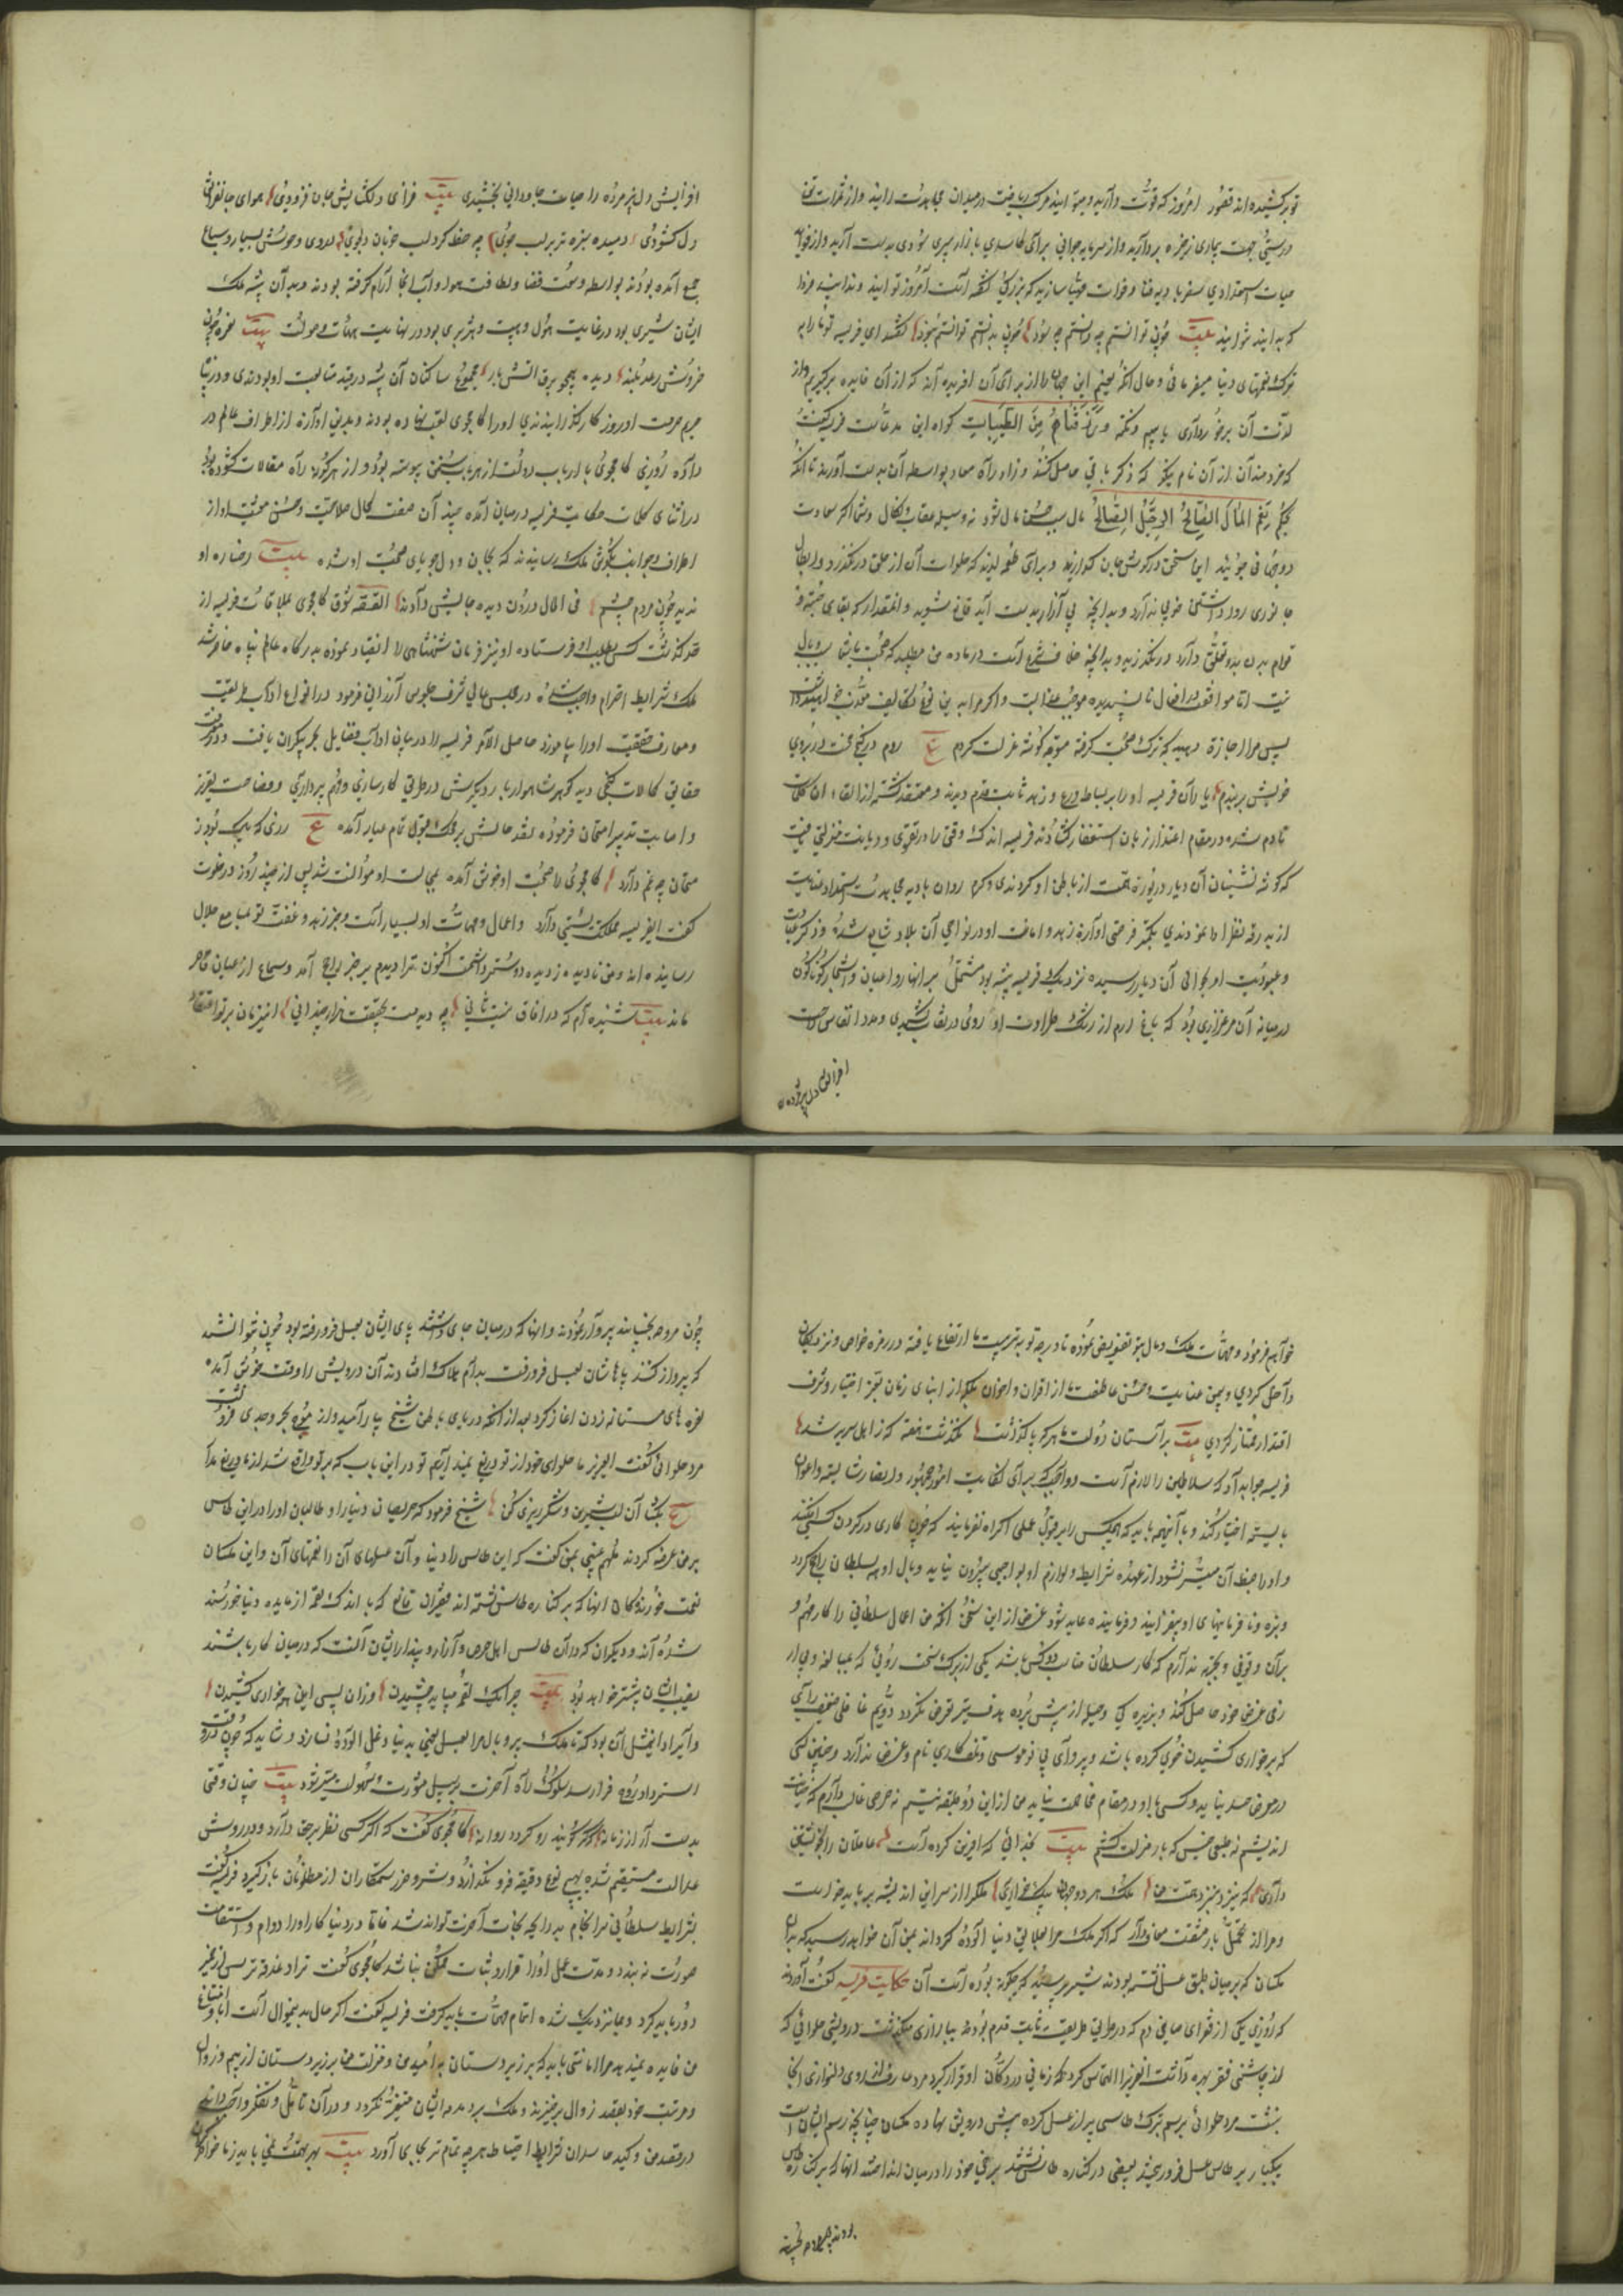 توبر کشیده اند قصور امروز که قوت دارید و میتوانید مرکب ریاضت در میدان مجاهدت رانید و از ثمرات
درستی جهت بیماری ذخیره بردارید و از سرمایه جوانی برای کاسدی بازار پیری سودی بدست آرید و از فواید
حیات استعدادی سفر بادیه فنا و فوات مهیا سازید که بزرگی گفته است امروز توانید و ندانید فردا
که بدانید نتوانید بیت چون توانستم چه دانستم چه سود چون بدانستم توانستم نبود گفتند ای فریسه تو ما را به
ترک نعمتهای دنیا میفرمائی و حال آنکه نعیم این جهان ما از برای آن آفریده اند که از آن فایده برگیریم و از
لذت آن برخورداری یابیم و نکته ورزقناهم من الطیبات گواه این مدعاست فریسه گفت
که خردمندان از آن نام نیکو که ذکر باقی حاصل کنند و زاد راه معاد بواسطه آن بدست آورند تا آنکه
بحکم نعم المال الصالح للرجل الصالح مال سبب حسن مآل شود نه وسیله عقاب و نکال و شما اگر سعادت
دوجهانی جوئید این سخن در گوش جان گذارید و برای طعمه لذیذ که حلاوت آن از حلق درنگذرد و ابطال
جانوری روا داشتن خوبی ندارد و بدانچه بی آزار بدست آید قانع شوید و آنمقدار که بقای جثه و
قوام بدن بدو تعلق دارد درنگذرید و بدانچه خلاف شرع است در ماده من مطلبید که صحبت با شما سبب وبال
نیست اما موافقت در افعال ناپسندیده موجب عذابست و اگر مرا به این نوع تکالیف معذب خواهید داشت
پس مرا اجازت دهید که ترک صحبت گرفته متوجه گوشه عزلت گردم ع روم در کنج محنت در بروی
خویش بربندم یاران فریسه او را بر بساط ورع و زهد ثابت قدم دیدند و معتقد گشته از القاء ان کلمات
نادم شده در مقام اعتذار زبان استغفار گشادند فریسه اندک وقتی را در تقوی و دیانت منزلتی یافت
که گوشه نشینان آن دیار دریوزه همت از باطن او کردندی و گرم روان بادیه مجاهدت استمداد عنایت
از بدرقه نظر او نمودندی بکمتر فرصتی آوازه زهد و امانت او در نواحی آن بلاد شایع شده و ذکر عبادت
و عبودیت او بحوالی آن دیار رسیده نزدیک فریسه بیشه بود مشتمل بر انهار و اعیان و اشجار گوناگون
در میانه آن مرغزاری بود که باغ ارم از رشک طراوت او روی در نقاب کشیدی و مدد انفاس صبحت
افزایش دل پژمرده
افزایش دل پژمرده را حیات جاودانی بخشیدی بیت فرزای دلکشایش جان فزودی هوای جانفزایش
دل کشودی دمیده سبزه تر بر لب جوی چه خط گرد لب خوبان دلجوی دروی وحوش بسیار و سباع
جمع آمده بودند بواسطه وسعت فضا و لطافت هوا و آب آنجا آرام گرفته بودند و بدان بیشه ملک
ایشان شیری بود در غایت هول و هیبت و هژبری بود در نهایت مهابت و صولت بیت نعره چون
خروش رعد بلند دیده همچو برق اتش بار مجموع ساکنان آن بیشه در قید متابعت او بودندی و در پناه
حریم حرمت او روز کار گذرانیدندی او را کامجوی لقب نهاده بودند و بدین آوازه از اطراف عالم در
داده روزی کامجوی با ارباب دولت از هر باب سخن پیوسته بود و از هر گونه راه مقالات گشوده بود
در اثنای کلمات حکایت فریسه در میان آمده چندان صفت کمال صلاحیت و حسن محبت او از
اطراف و جوانب بگوش ملک رسانیدند که بجان و دل جویای صحبت او شده بیت رخساره او
ندیده چون مردم چشم فی الحال درون دیده جایش دادند القصه شوق کامجوی بملاقات فریسه از
حد گذشت کس بطلب او فرستاده او نیز فرمان شهنشاهی را انقیاد نموده بدرگاه عالم پناه حاضر شد
ملک شرایط احترام واجب شناخته در مجلس عالی شرف جلوس ارزانی فرمود در انواع آداب طریقت
و معارف حقیقت او را بیازمود حاصل الامر فریسه را در بیان آداب و فضایل بحر بیکران یافت
حقایق کمالات گنجی دید گوهرش هموار بار دیگرش در طرائق کارسازی و مهم پردازی و فصاحت تقریر
و اصابت تدبیر امتحان فرموده نقد حالش بر محک قبول تمام عیار آمده ع زری که پاک بود از
محک چه غم دارد کامجوی را صحبت او خوش آمده بمجالست او موانست شد پس از چند روز در خلوت
گفت ای فریسه مملکت بستی دارد و اعمال و مهمات او بسیار است و خبر زهد و عفت تو بمسامع جلال
رسانیده اند و من نادیده ز دیده دوسترداشتمت اکنون ترا دیدم بر خبر راجح آمد و سماع از عیان قاصر
ماند بیت شنیده ام که در آفاق نیست ثانی چه دیدمت بحقیقت هزار چندانی این زمان بر تو اعتقاد
خواهم فرمود و مهمات ملک و مال بتو تفویض نموده تا درجه تو به تربیت ما ارتفاع یافته در زمره خواص و نزدیکان
داخل گردی و بیمن عنایت و حسن عاطفت ما از اقران و اخوان بلکه از ابنای زمان بمزید اختیار و شرف
اقتدار ممتاز گردی بیت بر آستان دولت ما هر که پا گذاشت نگذشت هفته که زاهل سریر شد
فریسه جواب داد که سلاطین را لازم است و واجب که برای کفایت امور جمهور و انصار شایسته و اعوان
بایسته اختیار کنند و با اینهمه باید که هیچکس را بر قبول عملی اکراه نفرمایند که چون کاری در گردن کسی افکنند
و او را ضبط آن میسر نشود از عهده شرایط و لوازم او بواجبی بیرون نیاید وبال او به سلطان راجع گردد
و بزه و نافرمانیهای او بفزایند و فرماینده عاید شود غرض از این سخن انکه من اعمال سلطانی را کاره ام و
بر آن وقوفی و تجربه ندارم که کار سلطان مناسب دو کس باشد یکی از برک سخت روئی که بمبالغه و بی ازر
می غرض خود حاصل کند و بزیرکی و حیل از پیش برده هدف تیر تعرض نگردد دویم غافلی ضعیف رای
که بر خواری کشیدن خوی کرده باشد و پروای بی ناموسی و تلف کاری نام و غرض ندارد و چنین کسی
در معرض حسد نیاید و کسی با او در مقام مخاصمت نیاید من از این دو طبقه نیستم نه حرصی غالب دارم که خیانت
اندیشم نه طبعی خسیس که بار مذلت کشم بیت بخدائی که آفرین کرده است عاقلان را بخویشتن
داری که نیرزد به نزد همت من ملک هر دو جهان بیک خواری ملک را از سر این اندیشه بر باید خواست
و مرا از تحمل بار مشقت معاف دار که اگر ملک مرا بعلایق دنیا آلوده گرداند بمن آن خواهد رسید که بدان
مکسان که بر میان طبق عسل نشسته بودند شیر پرسید که چگونه بوده است آن حکایت فریسه گفت آورده اند
که روزی یکی از فقرای صافی دم که در طریق طریقت ثابت قدم بود ببازاری میگذشت درویشی حلوائی که
از چاشنی فقر بهره داشت آنعزیز را التماس کرد که زمانی در دکان او قرار گیرد مرد عارف از روی دلنوازی آنجا
بنشست مرد حلوائی برسم تبرک طاسی پر از عسل کرده پیش درویش نهاد مکسان چنانچه رسم ایشان است
بیکبار بر طاس عسل فرو ریختند بعضی در کناره طاس نشستند برخی خود را در میان انداختند آنها که بر کناره طاس
بودند چون مروحه بجنبید
چون مروحه بجنبانند پرواز نمودند و انها که در میان جای داشتند پای ایشان بعسل فرو رفته بود چون خواستند
که پرواز کنند پاهاشان بعسل فرو رفت بدام هلاک افتادند آن درویش را وقت خوش آمده
نعره های مستانه زدن اغاز کرد بعد از آنکه دریای باطن شیخ بیارامید و از موج بحر وجدی فرو نشست
مرد حلوائی گفت ایعزیز ما حلوای خود از تو دریغ نمیداریم تو در این باب که بر تو واقع شد از ما دریغ مدار
ع بگشا آن لب شیرین و شکرریزی کن شیخ فرمود که حریصان دنیا را و طالبان او را در این طاس
بر من عرضه کردند ملهم غیبی بمن گفت که این طاس را دنیا و آن عسلهای آن را نعمتهای آن و این مکسان
نعمت خورندگان انها که بر کناره طاس نشسته اند فقیران قانع که با اندک لقمه از مایده دنیا خورسند
شده اند و دیگران که در آن طاس اهل حرص و آزند و پندار ایشان آنست که در میان کار باشند
نصیب ایشان بیشتر خواهد بود بیت چرا یک لقمه میباید چشیدن وزان پس این همه خواری کشیدن
و ایراد این مثل آن بود که تا ملک پر و بال مرا بعسل یعنی به دنیا و غل آلوده نسازد و شاید که چون وقت
استرداد روح فرا رسد سلوک راه آخرت بر سبیل مشورت و سهولت میسر شود بیت چنان وقتی
بدست آر از زمانه که گر گویند رو گردد روانه کامجوی گفت که اگر کسی نظر بر حق دارد و در روش
عدالت مستقیم شده بهیچ نوع دقیقه فرو نگذارد و شر و ضرر ستمکاران از مظلومان بازگیرد فریسه گفت
شرایط سلطانی سرانجام یابد آنچه بنجات آخرت تواند شد فاما در دنیا کار او را دوام و استقامت
صورت نه بندد و مدت عمل او را قرار و ثبات ممکن نباشد کامجوی گفت ترا دغدغه ترس از غیر
دور باید کرد و بما نزدیک شده اتمام مهمات باید گرفت فریسه گفت اگر حال بدینمنوال است
من فایده نمیدهد مرا امانتی باید که بر زبر دستان به امید من و منزلت من بر زیردستان از بیم و زوال
و مرتبت خود بقصد زوال برخیزند و ملک بر دمدمه ایشان متغیر نگردد و در آن تامل و تفکر واجب داند
در مقصد من و کید حاسدان شرایط احتیاط هر چه تمام تر بجای آورد بیت بهر تهمتت نمی باید ز ما خواطر